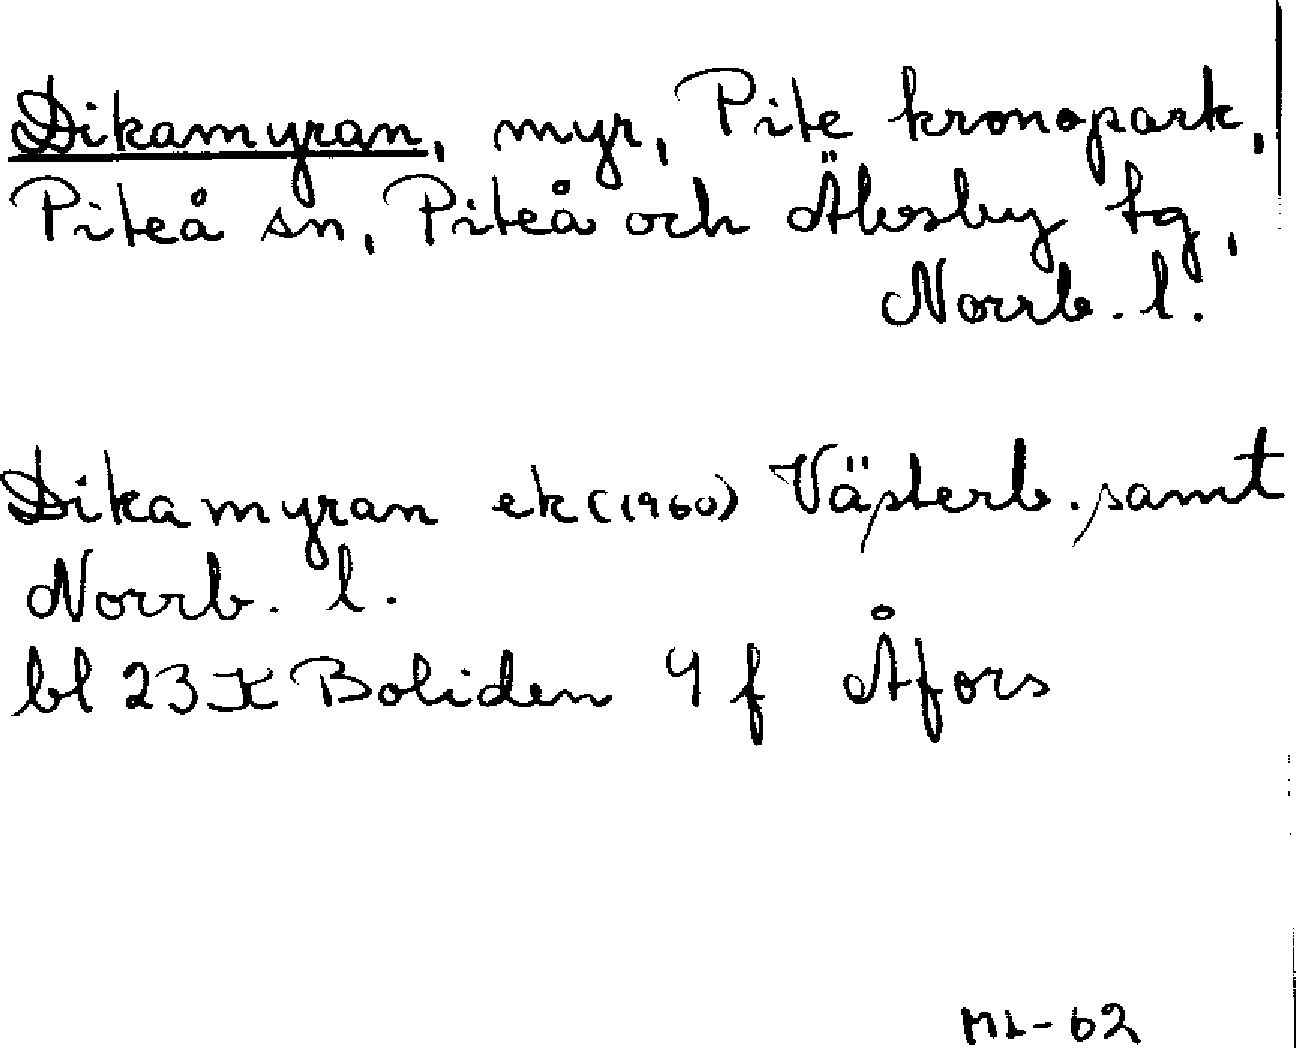 Dikamyran, myr, Pite kronopark,
Piteå sn, Piteå och Älvsby tg,
Norrb. l.
Dikamyran ek (1960) Västerb. samt
Norrb. l.
bl 23 K Boliden 9 f Åfors
ML-62